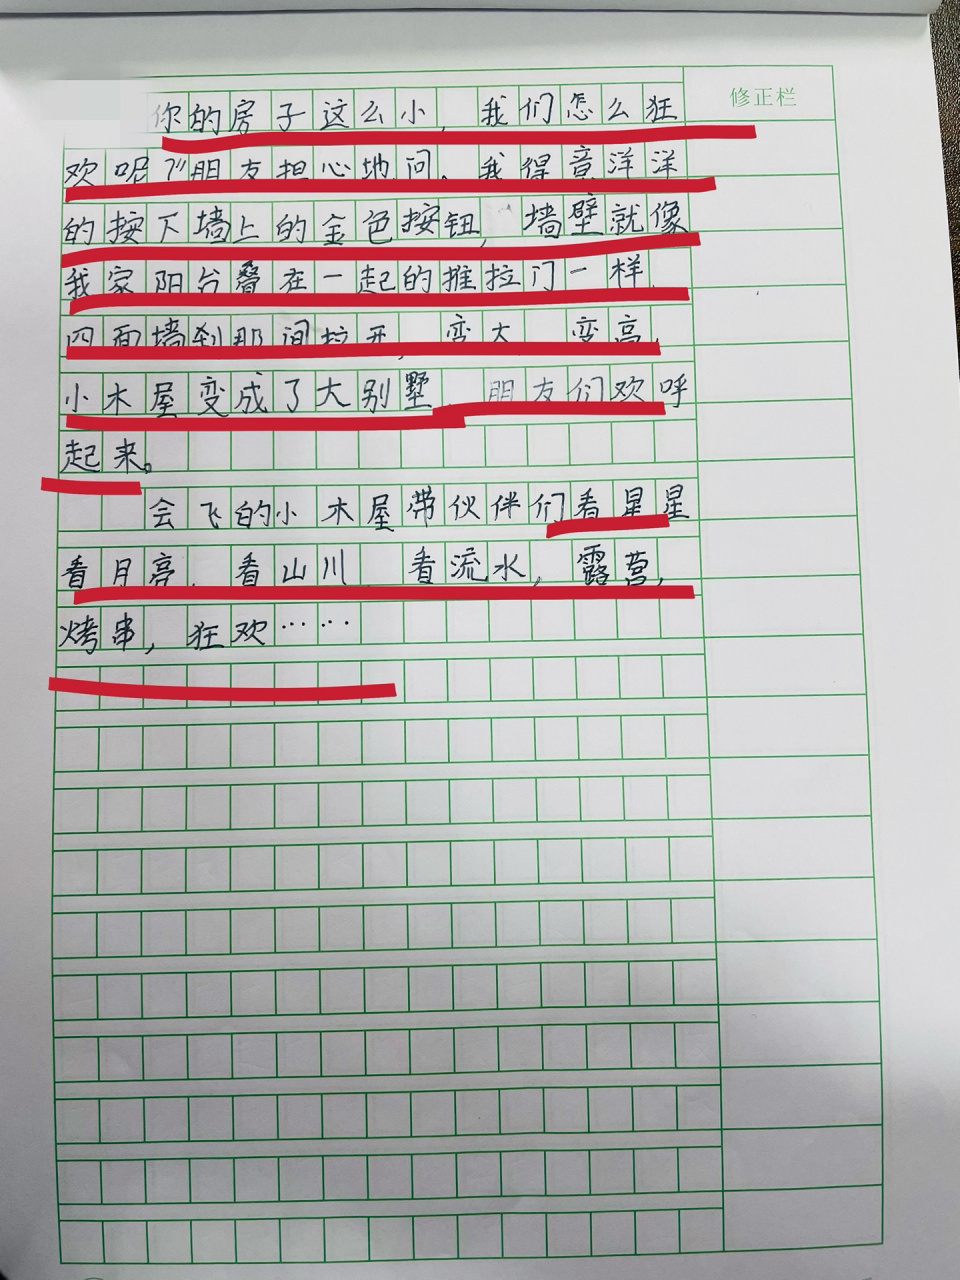 修正栏
你的房子这么小，我们怎么狂
欢呢？”朋友担心地问。我得意洋洋
的按下墙上的金色按钮，墙壁就像
我家阳台叠在一起的推拉门一样，
四面墙刹那间拉开，变大、变高，
小木屋变成了大别墅，朋友们欢呼
起来。
会飞的小木屋带伙伴们看星星
看月亮、看山川、看流水，露营，
烤串，狂欢……